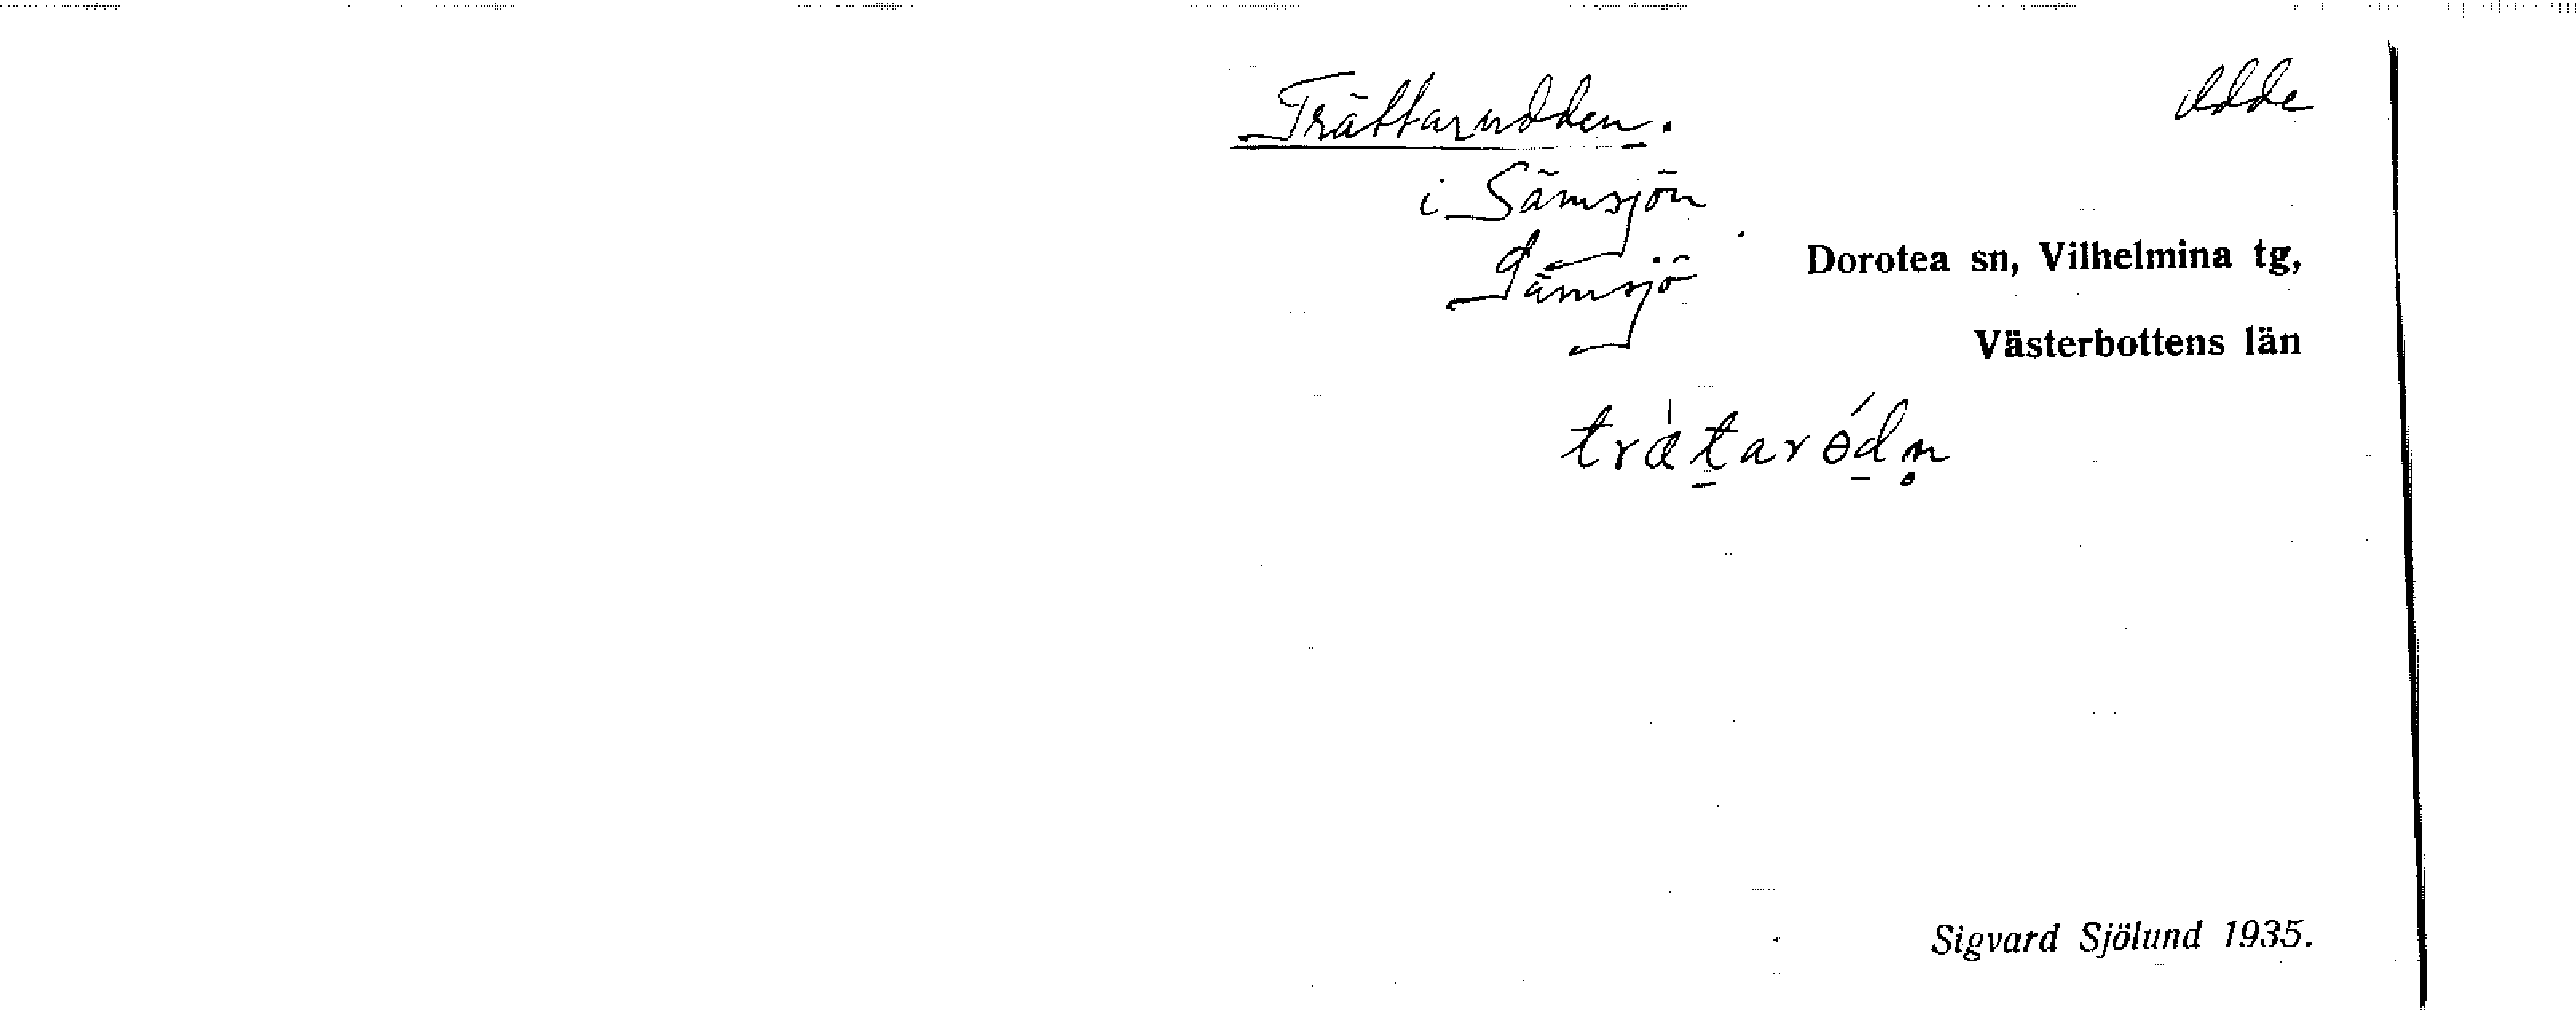 Trättarudden. Udde
i Sämsjön
Sämsjö
Dorotea sn, Vilhelmina tg,
Västerbottens län
tràtaródn̥
Sigvard Sjölund 1935.